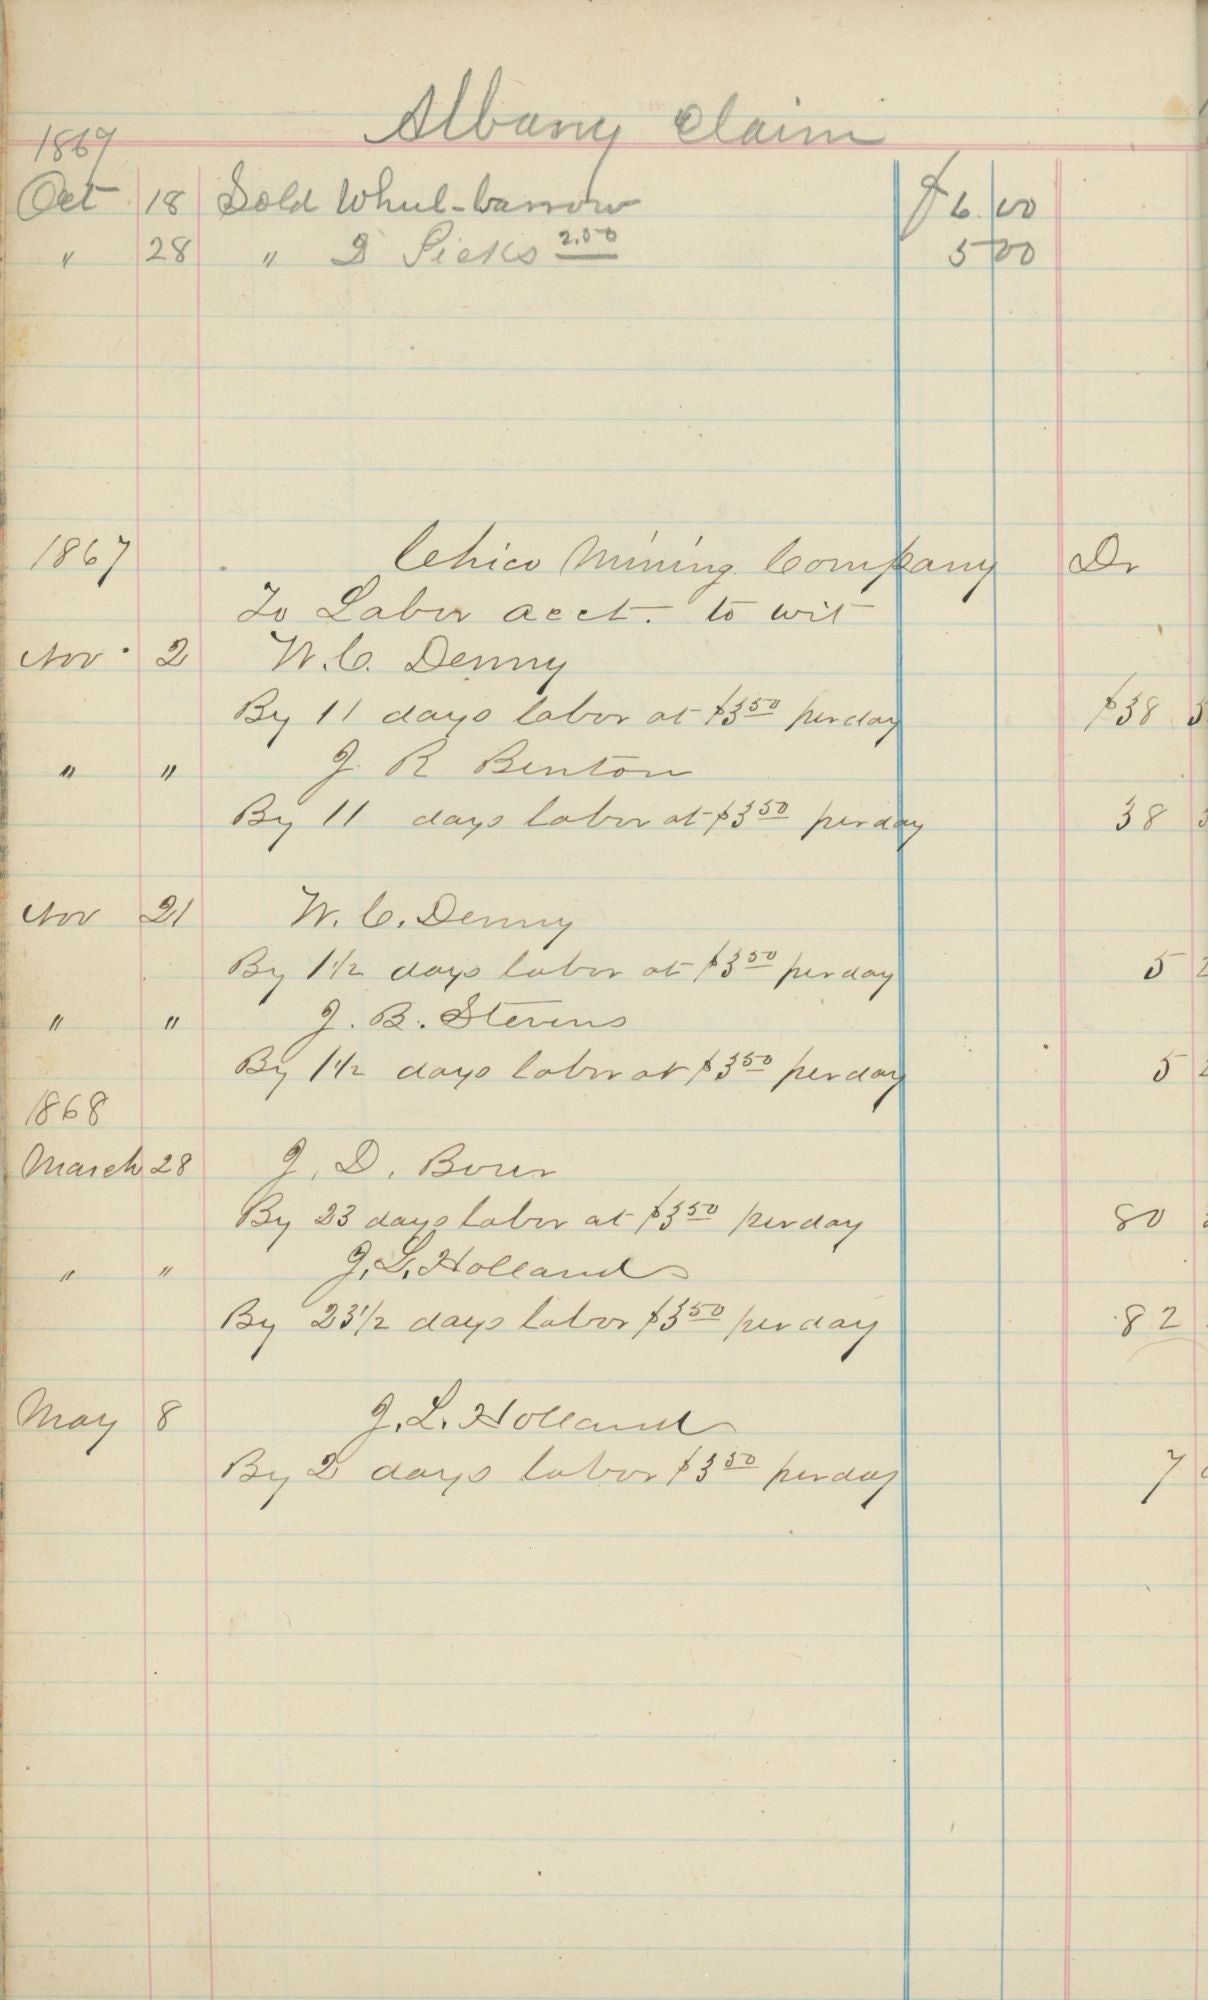 Albany Claim
1867
Oct 18 Sold Wheel-barrow $6.00
" 28 " 2 Picks 2.50 5 00
1867 Chico Mining Company Dr
To Labor acct. to wit
Nov 2 W. C. Denny
By 11 days labor at $3 50 per day $38
" " J R Benton
By 11 days labor at $3 50 per day 38
Nov 21 W. C. Denny
By 1 1/2 days labor at $3 50 per day 5
" " J. B. Stevens
By 1 1/2 days labor at $3 50 per day 5
1868
March 28 J. D.
By 23 days labor at $3 50 per day 80
" " J. L. Holland
By 23 1/2 days labor $3 50 per day 82
May 8 J. L. Holland
By 2 days labor $3 50 per day 7